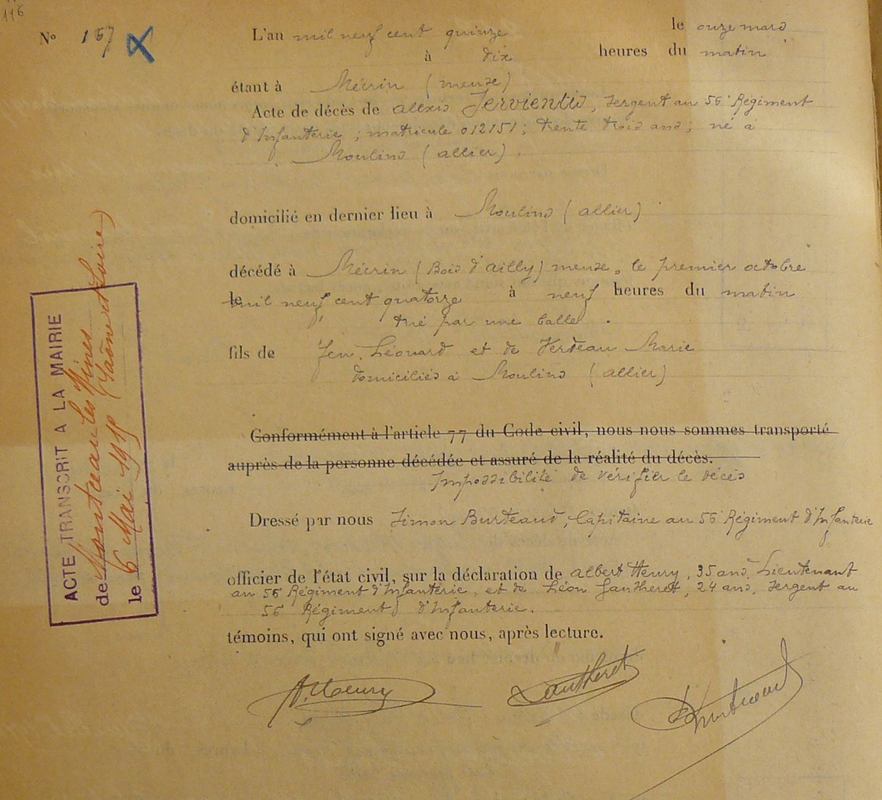 116
N° 157
L'an mil neuf cent quinze le onze mars
à dix heures du matin
étant à Mécrin (meuse)
Acte de décès de alexis Servientis, sergent au 56e Régiment
d'Infanterie ; matricule 012151 ; trente trois ans ; né à
Moulins (allier).
domicilié en dernier lieu à Moulins (allier)
décédé à Mécrin (Bois d'ailly) meuse, le premier octobre
le mil neuf cent quatorze à neuf heures du matin
tué par une balle.
fils de Léonard et de Verdeau Marie
domiciliés à Moulins (allier)
Conformément à l'article 77 du Code civil, nous nous sommes transporté
auprès de la personne décédée et assuré de la réalité du décès.
Impossibilité de vérifier le décès
Dressé par nous Simon Burteaud, Capitaine au 56e Régiment d'Infanterie
officier de l'état civil, sur la déclaration de albert Henry, 35 ans, Lieutenant
au 56e Régiment d'Infanterie, et de Léon Gautheret, 24 ans, sergent au
56e Régiment d'Infanterie.
témoins, qui ont signé avec nous, après lecture.
ACTE TRANSCRIT A LA MAIRIE
de Montceau les Mines
(Saône et Loire)
le 6 Mai 1915